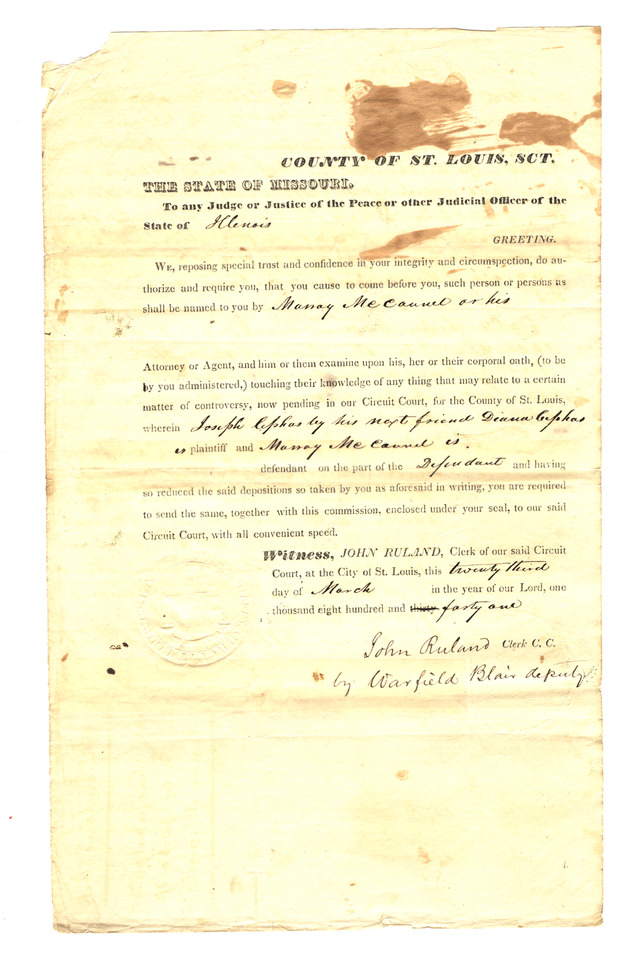 COUNTY OF ST. LOUIS, SCT.
THE STATE OF MISSOURI.
To any Judge or Justice of the Peace or other Judicial Officer of the
State of Illenois
GREETING.
WE, reposing special trust and confidence in your integrity and circumspection, do au-
thorize and require you, that you cause to come before you, such person or persons as
shall be named to you by Murray McConnel or his
Attorney or Agent, and him or them examine upon his, her or their corporal oath, (to be
by you administered,) touching their knowledge of any thing that may relate to a certain
matter of controversy, now pending in our Circuit Court, for the County of St. Louis,
wherein Joseph Cephas by his next friend Diana Cephas
is plaintiff and Murray McConnel is
defendant on the part of the Defendant and having
so reduced the said depositions so taken by you as aforesaid in writing, you are required
to send the same, together with this commission, enclosed under your seal, to our said
Circuit Court, with all convenient speed.
Witness, JOHN RULAND, Clerk of our said Circuit
Court, at the City of St. Louis, this twenty third
day of March in the year of our Lord, one
thousand eight hundred and thirty forty one
John Ruland Clerk C. C.
by Warfield Blair deputy